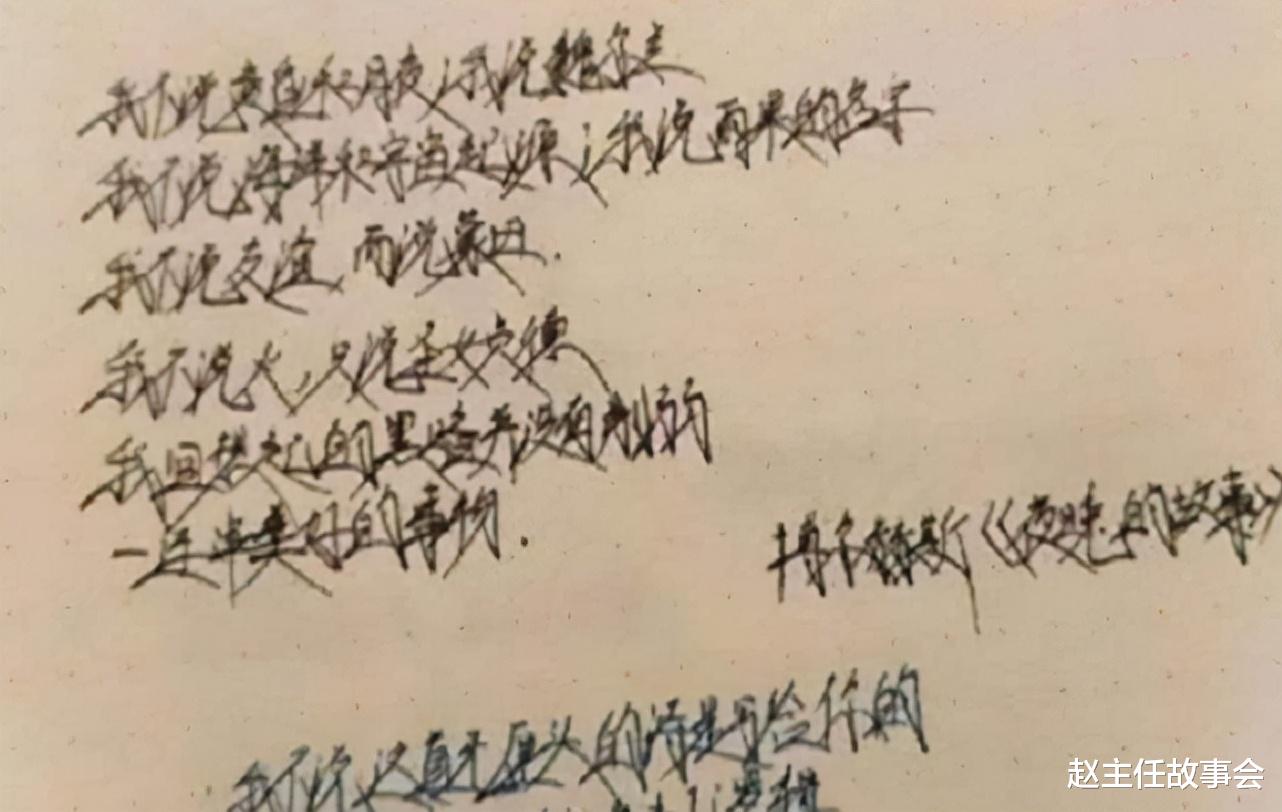 我不说夜色和月夜；我说魏尔兰
我不说海洋和宇宙起源；我说雨果的名字
我不说友谊，而说蒙田.
我不说火，只说圣女贞德
我回想起的黑暗并没有削
一连串美好的事物.
博尔赫斯《夜晚的故事》
我不说这真牙原头的诗是写给你的
赵主任故事会